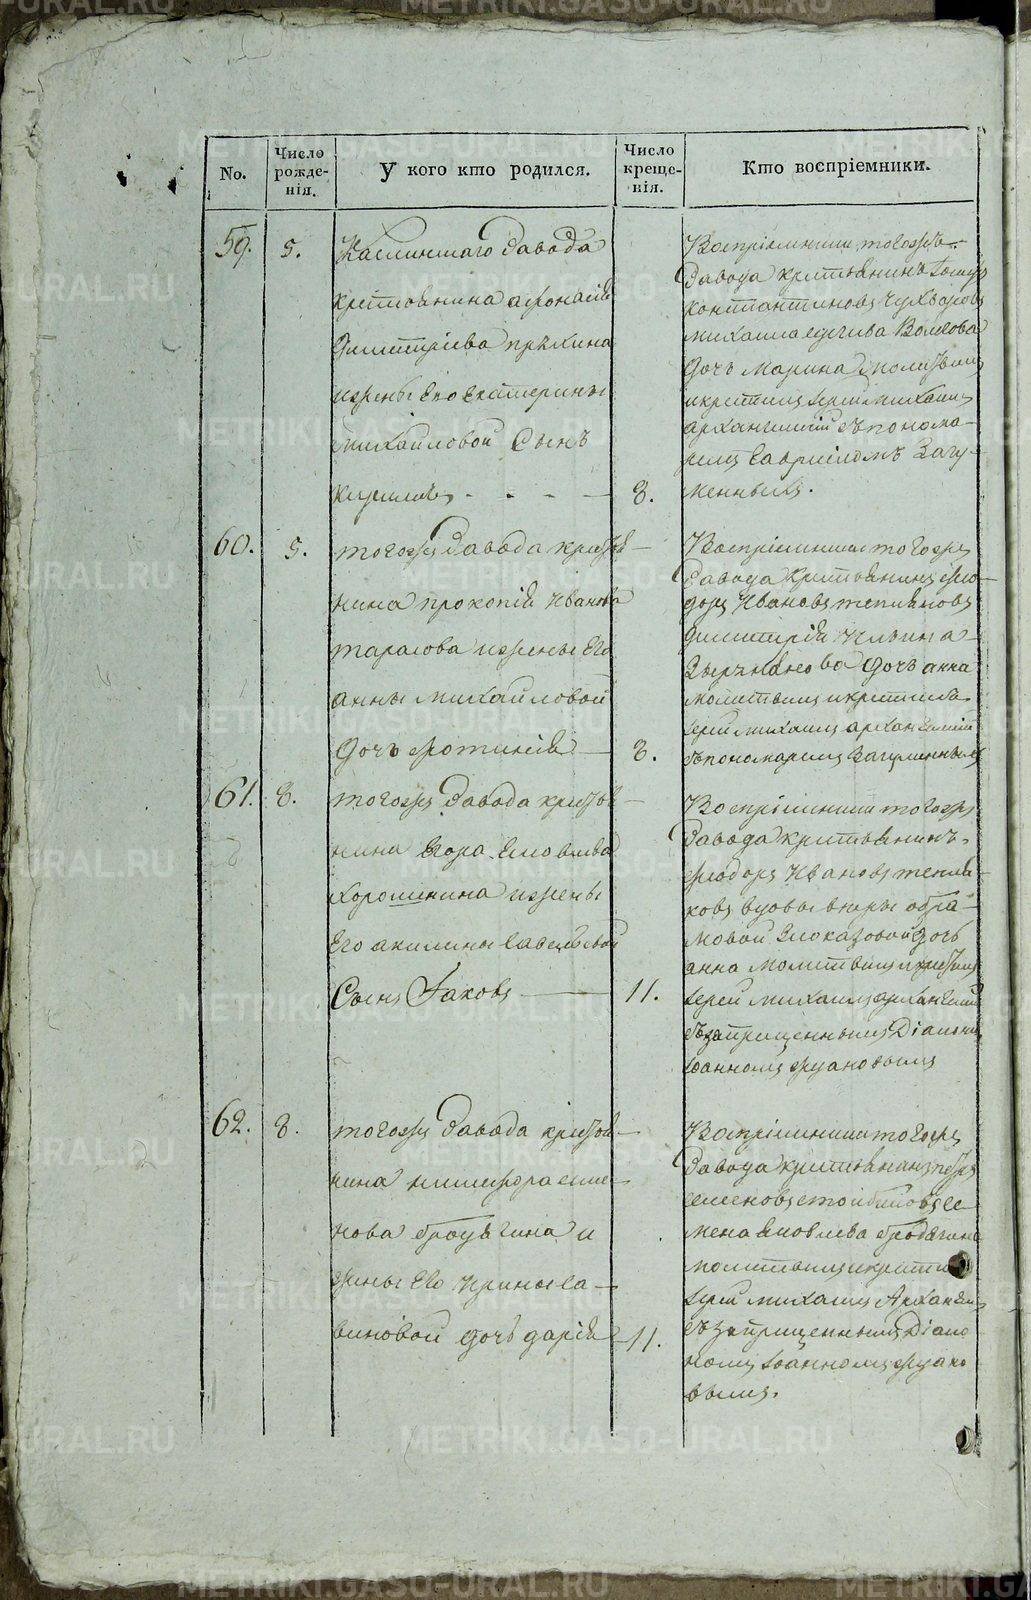 No.
Число рожде- нія.
У кого кто родился.
Число креще- нія.
Кто воспріемники.
59.
5.
Каслинскаго завода
крестьянина афонасія
димитріева пряхина
изжены Его Екатерины
михайловой Сынъ
кириллъ
8.
Воспріемники тогожъ
завода крестьянинъ
константиновъ
михаила Волкова
дочь марина молитвилъ
икрестилъ Іерей михаилъ
архангелскій съ понома-
ремъ гавріиломъ Загу-
менныхъ.
60.
5.
тогожъ завода кресть-
нина прокопія Иванова
тарасова изжены Его
анны михайловой
дочь фотинія
8.
Воспріемники тогожъ
завода крестьянинъ фео-
доръ Ивановъ тепляковъ
димитрія Ильина
Зырянова дочь анна
молитвилъ икрестилъ
Іерей михаилъ архангелскій
съпономаремъ Загуменнымъ
61.
8.
тогожъ завода кресть
нина Егора
хорошенина изжены
Его акилины савельевой
Сынъ Іаковъ
11.
Воспріемники тогожъ
завода крестьянинъ
феодоръ Ивановъ тепля-
ковъ вдовы
дочь
анна молитвилъ икрестилъ
Іерей михаилъ архангелскій
съзапрещеннымъ Діакономъ
Іоанномъ
62.
8.
тогожъ завода кресть-
нина никифора семе-
нова бродягина и
жены Его Ирины са-
виновой дочь дарія
11.
Воспріемники тогожъ
завода крестьянинъ петръ
семеновъ се-
мена яковлева бродягина
молитвилъ икрестилъ
Іерей михаилъ Архангел
съзапрещеннымъ Діако
номъ Іоанномъ
вымъ.
METRIKI.GASO-URAL.RU